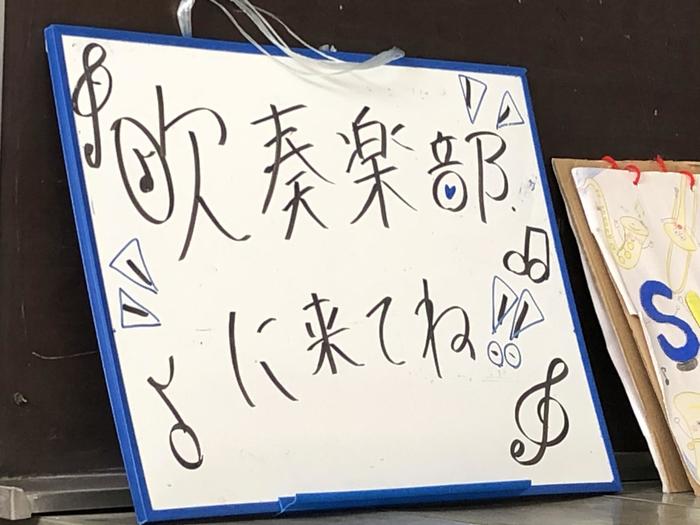 吹奏楽部
に来てね!!
S